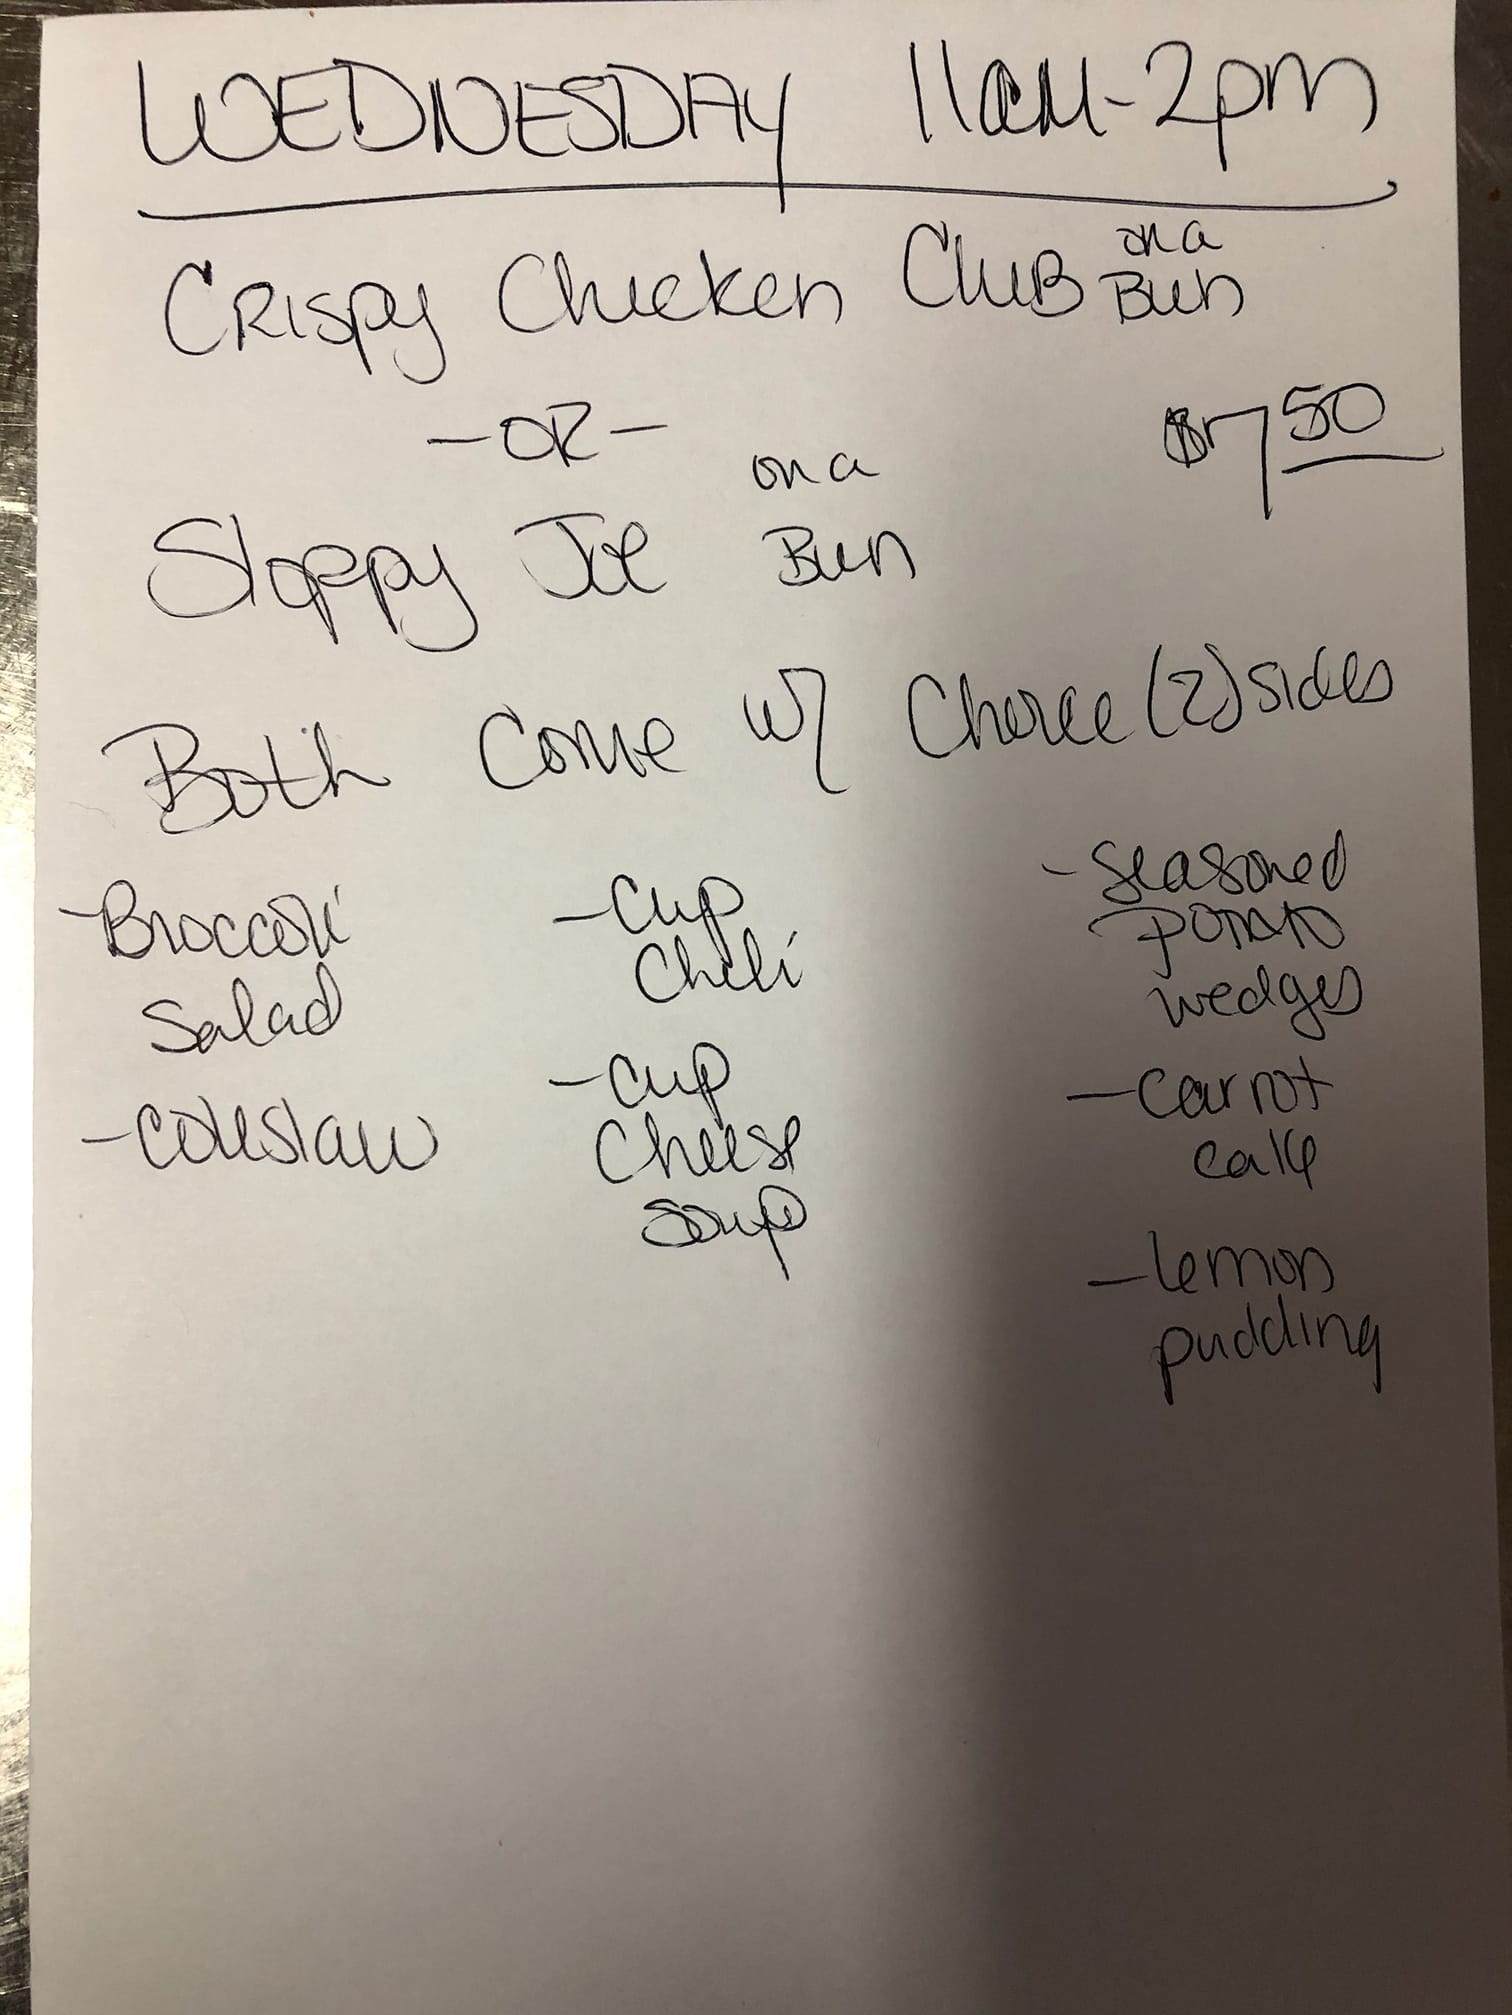 WEDNESDAY 11am-2pm
Crispy Chicken Club on a Bun
-OR-
$7.50
Sloppy Joe on a Bun
Both Come w/ Choice (2) sides
-Broccoli
Salad
-Coleslaw
-Cup
Chili
-Cup
Cheese
Soup
-Seasoned
Potato
wedges
-Carrot
cake
-Lemon
pudding